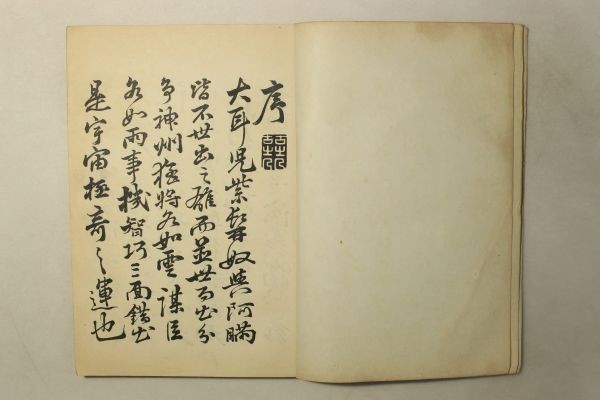 序
大耳児紫髯奴與阿瞞
皆不世出之雄而並世而出分
争神州猛将各如雲謀臣
各如雨事機智巧三面錯出
是宇宙極奇之運也